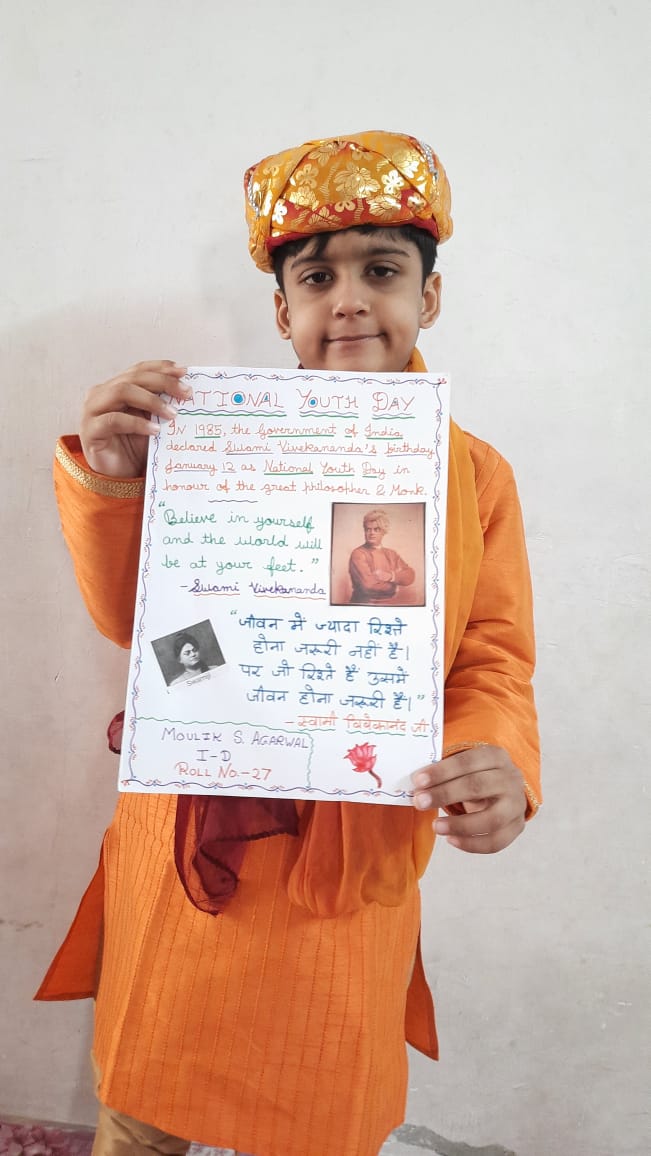 NATIONAL YOUTH DAY
IN 1985, the Government of India
declared Swami Vivekananda's birthday
January 12 as National Youth Day in
honour of the great philosopher & Monk.
"Believe in yourself
and the world will
be at your feet."
- Swami Vivekananda
"जीवन में ज्यादा रिश्ते
होना जरूरी नहीं है।
पर जो रिश्ते हैं उसमें
जीवन होना जरूरी है।"
- स्वामी विवेकानंद जी.
Swamiji
MOULIK S. AGARWAL
I-D
ROLL No.-27